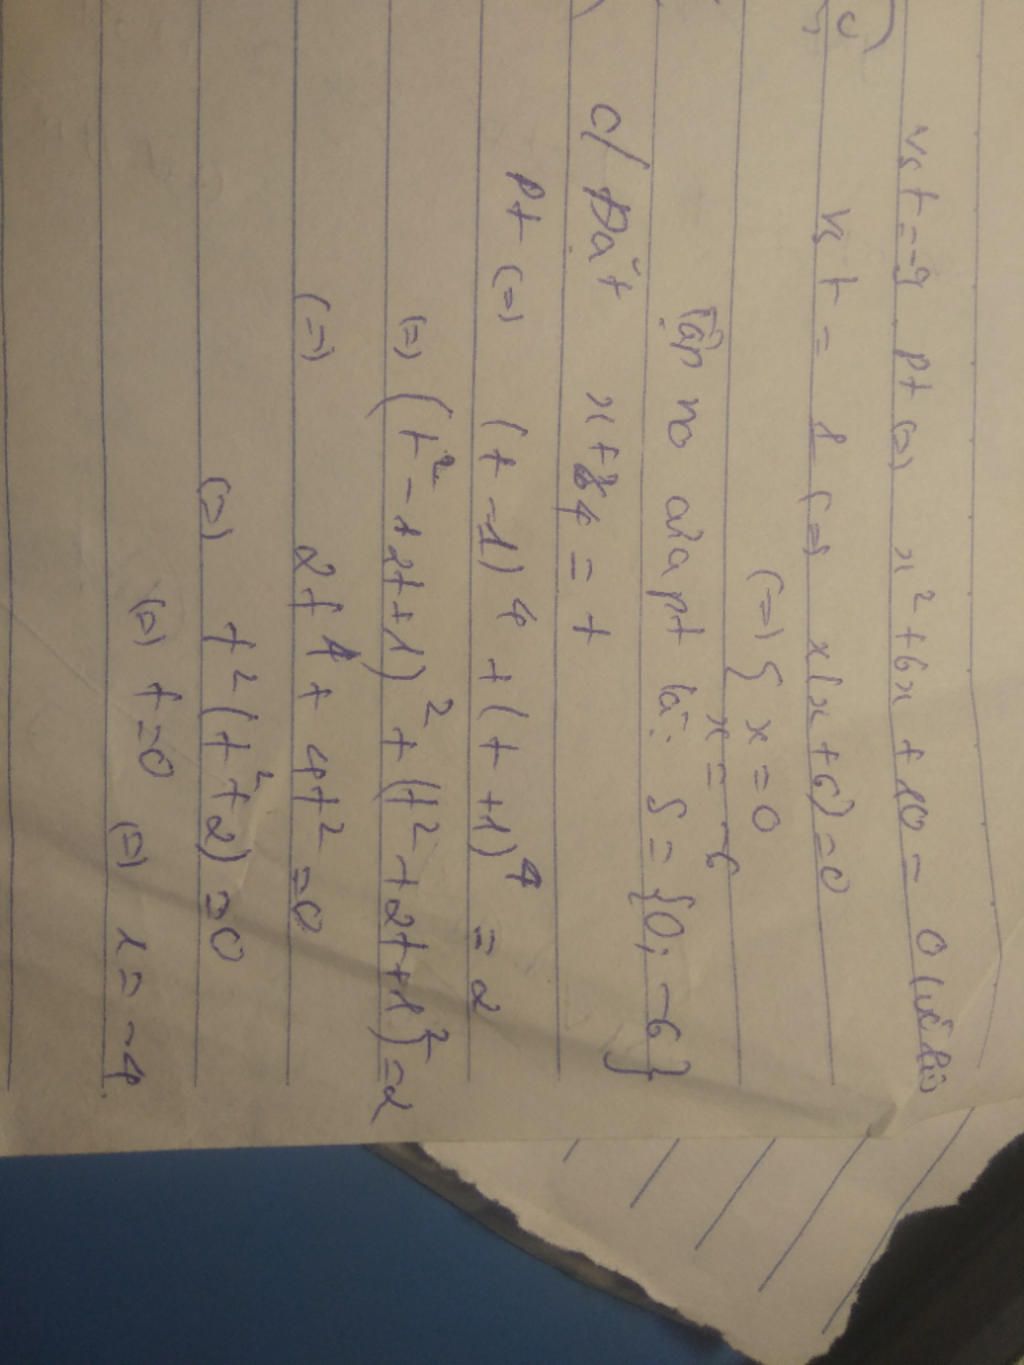 vs t = -9 pt (=) x² + 6x + 10 = 0 (vô lí)
c)
vs t = 1 (=) x(x + 6) = 0
(=) { x = 0
x = -6
Tập no của pt là: S = {0; -6}
c/ Đặt x + 4 = t
Pt (=) (t - 1)⁴ + (t + 1)⁴ = 2
(=) (t² - 2t + 1)² + (t² + 2t + 1)² = 2
(=) 2t⁴ + 4t² = 0
(=) t² (t² + 2) = 0
(=) t = 0 (=) x = -4